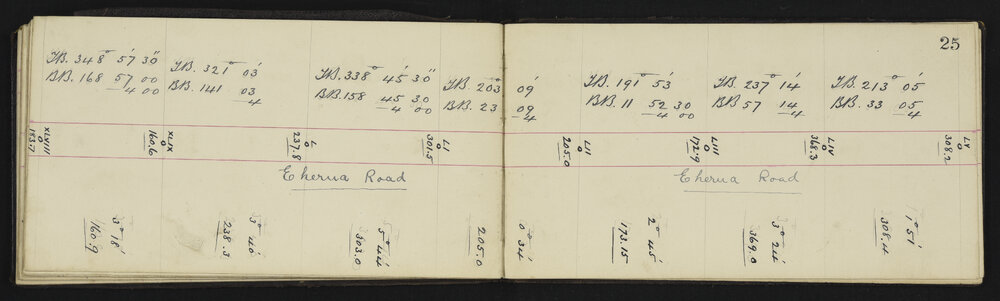 25
F.B. 348° 57' 30"
B.B. 168 57 00
4 00
F.B. 321° 03'
B.B. 141 03
4
F.B. 338° 45' 30"
B.B. 158 45 30
4 00
F.B. 203° 09'
B.B. 23 09
4
F.B. 191° 53'
B.B. 11 52 30
4 00
F.B. 237° 14'
B.B. 57 14
4
F.B. 213° 05'
B.B. 33 05
4
XLVIII
0
183.17
XLIX
0
160.6
L
0
237.8
LI
0
301.5
LII
0
205.0
LIII
0
172.9
LIV
0
368.3
LV
0
308.2
Eherua Road
Eherua Road
3° 18'
160.9
3° 40'
238.3
5° 44'
303.0
0° 34'
205.0
2° 45'
173.15
3° 24'
369.0
1° 51'
308.4